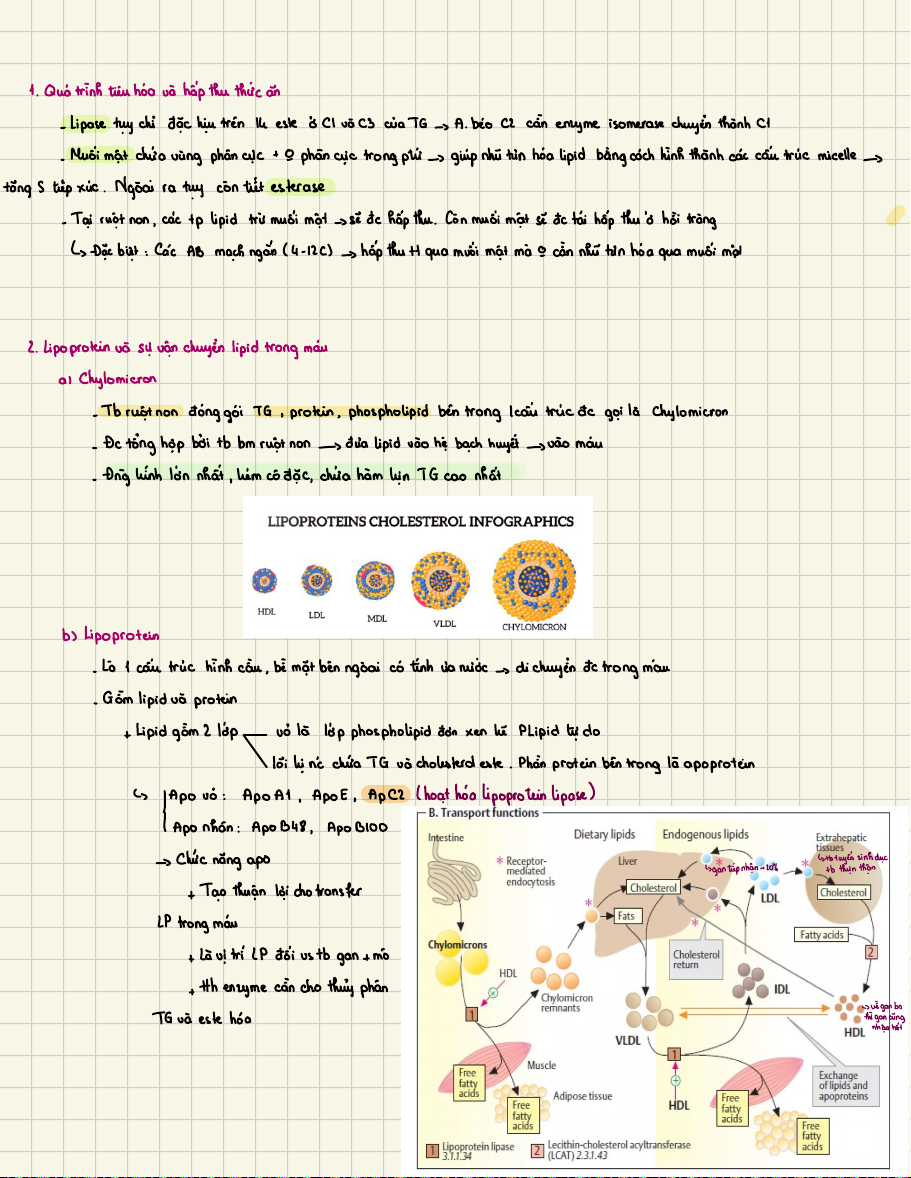 1. Quá trình tiêu hóa và hấp thu thức ăn
- Lipase tụy chỉ đặc hiệu trên lk este ở C1 và C3 của TG → A. béo C2 cần enzyme isomerase chuyển thành C1
- Muối mật chứa vùng phân cực + 0 phân cực trong ptử → giúp nhũ tuơn hóa lipid bằng cách hình thành các cấu trúc micelle →
tăng S tiếp xúc. Ngoài ra tụy còn tiết esterase
- Tại ruột non, các tp lipid trừ muối mật → sẽ đc hấp thu. Còn muối mật sẽ đc tái hấp thu ở hồi tràng
↳ Đặc biệt: Các AB mạch ngắn (4-12C) → hấp thu tt qua muối mật mà 0 cần nhũ tươn hóa qua muối mật
2. Lipoprotein và sự vận chuyển lipid trong máu
a) Chylomicron
- Tb ruột non đóng gói TG, protein, phospholipid bên trong 1 cấu trúc đc gọi là Chylomicron
- Đc tổng hợp bởi tb bm ruột non → đưa lipid vào hệ bạch huyết → vào máu
- Đng kính lớn nhất, kém cô đặc, chứa hàm lựn TG cao nhất
LIPOPROTEINS CHOLESTEROL INFOGRAPHICS
HDL LDL MDL VLDL CHYLOMICRON
b) Lipoprotein
- Là 1 cấu trúc hình cầu, bề mặt bên ngoài có tính ưa nước → di chuyển đc trong máu
- Gồm lipid và protein
+ Lipid gồm 2 lớp
vỏ là lớp phospholipid đơn xen kẽ PLipid tự do
lõi kị nc chứa TG và cholesterol este. Phần protein bên trong là apoprotein
↳ Apo vỏ: Apo A1, Apo E, Ap C2 (hoạt hóa lipoprotein lipase)
Apo nhân: Apo B48, Apo B100
→ Chức năng apo
+ Tạo thuận lợi cho transfer
LP trong máu
+ Là vị trí LP đối vs tb gan, mô
+ tth enzyme cần cho thủy phân
TG và este hóa
B. Transport functions
Intestine
Dietary lipids
Endogenous lipids
Extrahepatic
tissues
↳ tb tuyến sinh dục
tb thượng thận
* Receptor-
mediated
endocytosis
Liver
↳ gan tiếp nhận ~10%
Cholesterol
LDL
Cholesterol
Fats
Fatty acids
Chylomicrons
2
Cholesterol
return
HDL
IDL
Chylomicron
remnants
1
VLDL
HDL
→ về gan
1
Muscle
Free
fatty
acids
Adipose tissue
Free
fatty
acids
HDL
Exchange
of lipids and
apoproteins
Free
fatty
acids
Free
fatty
acids
1 Lipoprotein lipase
3.1.1.34
2 Lecithin-cholesterol acyltransferase
(LCAT) 2.3.1.43